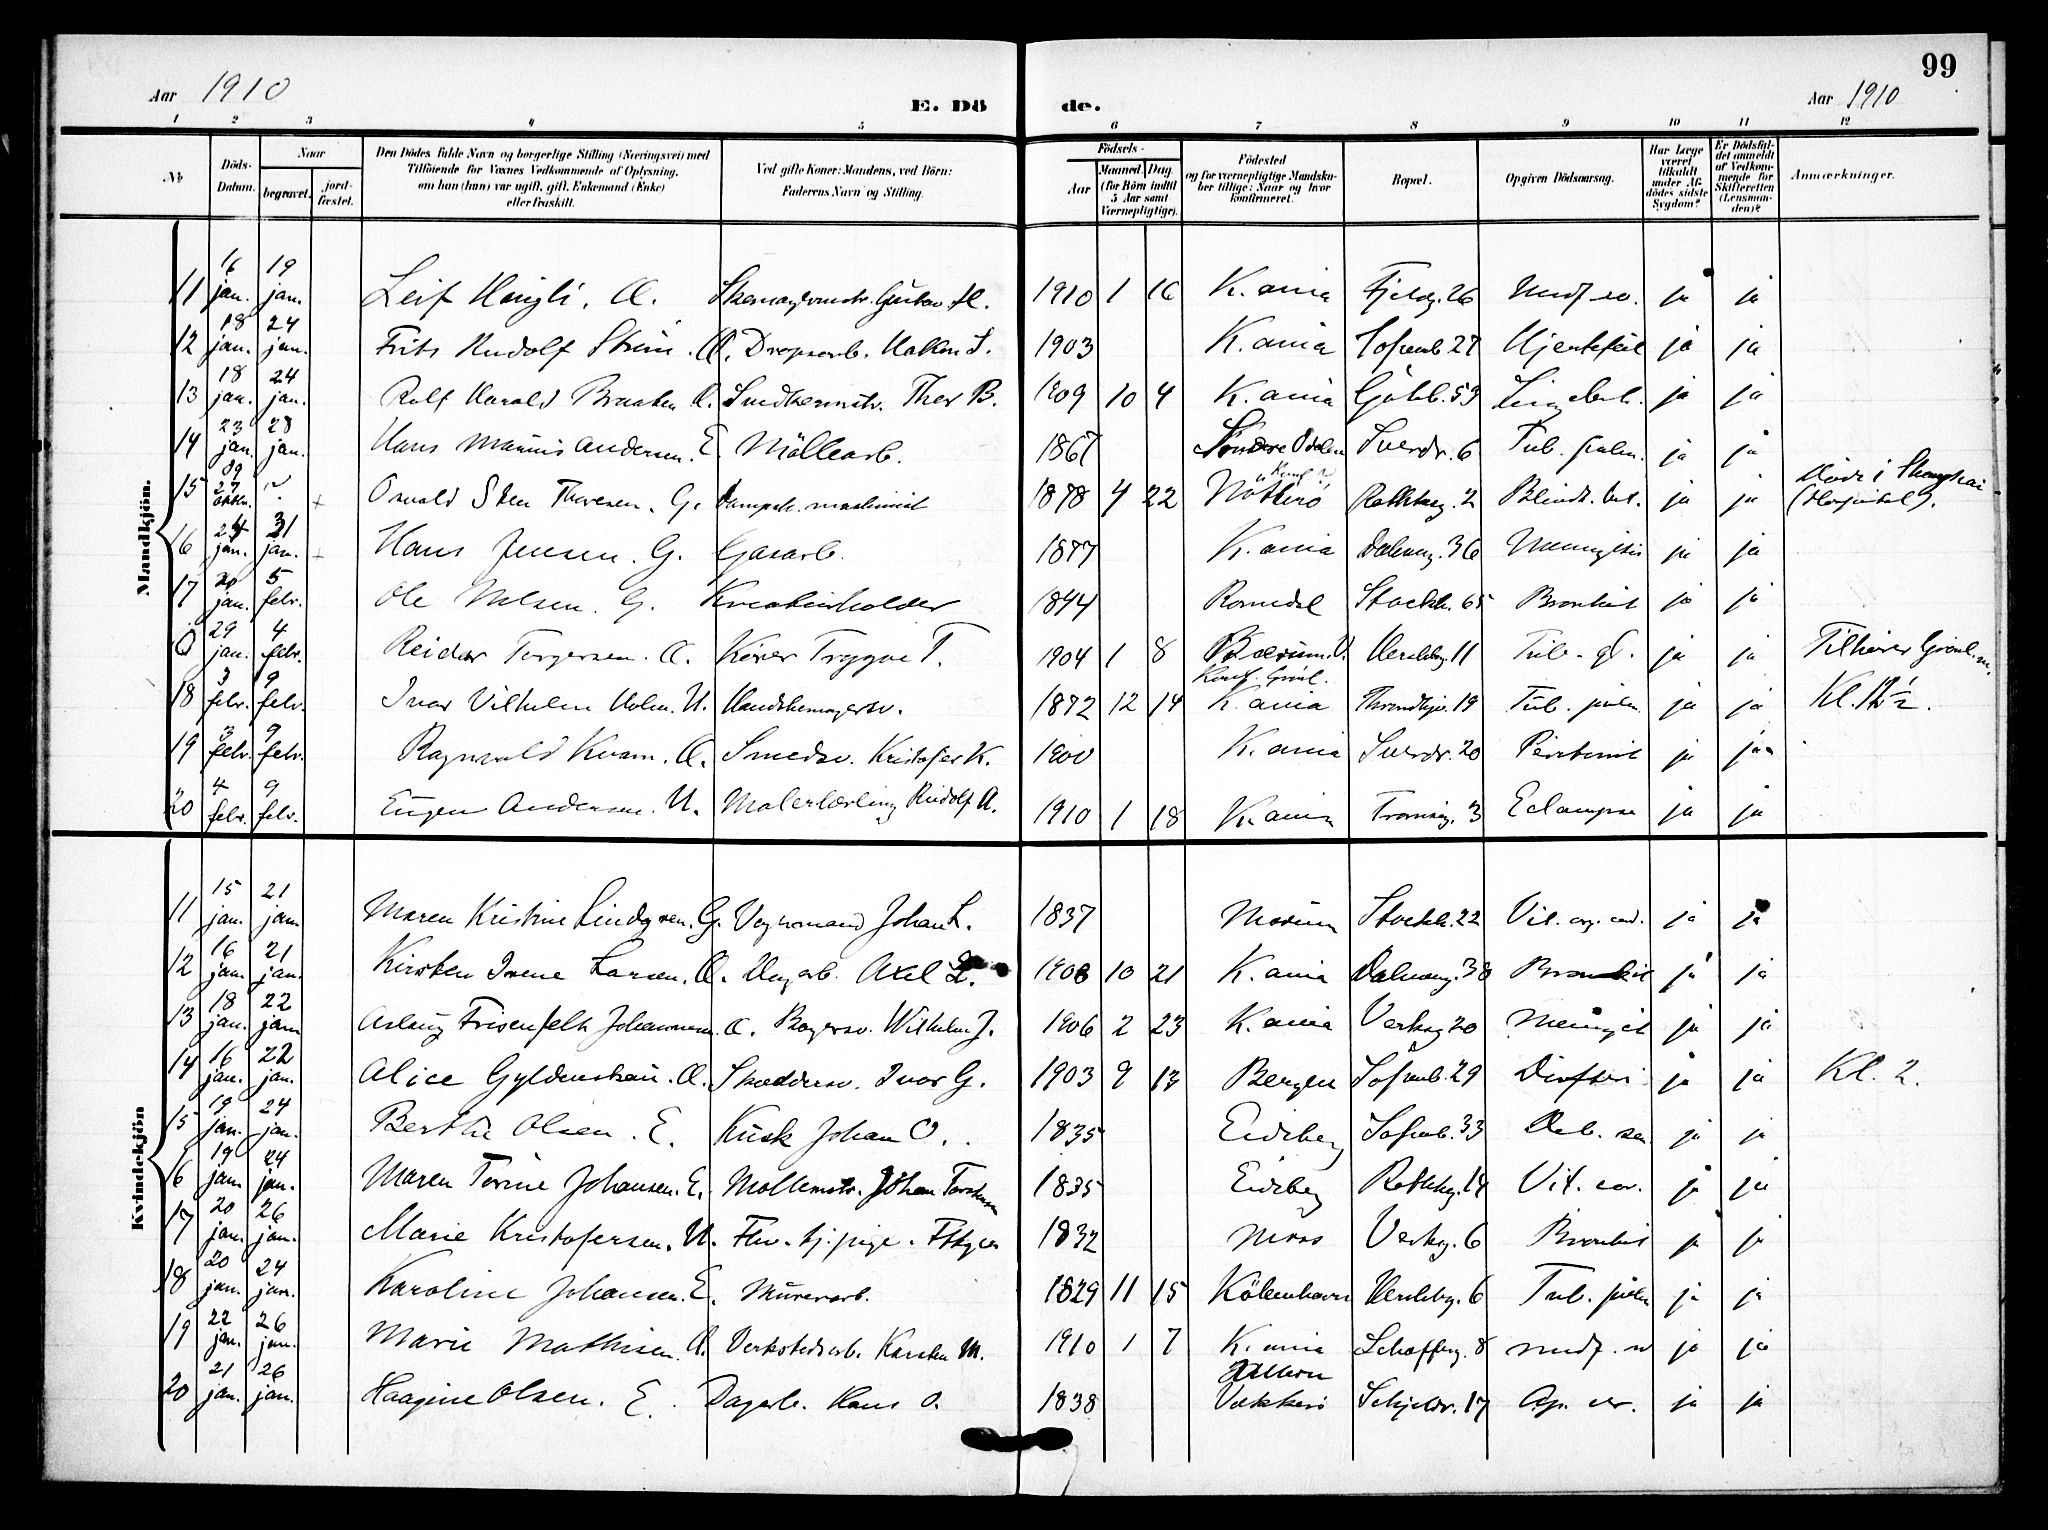 99
Aar 1910
E. Dö
de.
Aar 1910
1 2 3 4 5 6 7 8 9 10 11 12
No
Döds-Datum.
Naar
begravet.
jord-fæstet.
Den Dödes fulde Navn og borgerlige Stilling (Næringsvei) med
Tilföiende for Voxnes Vedkommende af Oplysning,
om han (hun) var ugift, gift, Enkemand (Enke)
eller fraskilt.
Ved gifte Koner: Mandens, ved Börn:
Faderens Navn og Stilling.
Födsels-
Aar
Maaned. Dag.
(for Börn indtil
5 Aar samt
Værnepligtige).
Födested
og for værnepligtige Mandska-
ber tillige: Naar og hvor
konfirmeret.
Bopæl.
Opgiven Dödsaarsag.
Har Læge
været
tilkaldt
under Af-
dödes sidste
Sygdom?
Er Dödsfal-
det anmeldt
af Vedkom-
mende for
Skifteretten
(Lensman-
den)?
Anmærkninger.
Mandkjön.
11 16 jan. 19 jan. Leif Haugli. U. Gustav H. 1910 1 16 K.ania Fjeldg. 26 ja ja
12 18 jan. 24 jan. Frits Rudolf U. Hakon S. 1903 K.ania Sofienb. 27 Hjertefeil ja ja
13 18 jan. 24 jan. Rolf Harald Braaten U. Snedkermstr. Thor B. 1909 10 4 K.ania Göteb. 53 ja ja
14 23 jan. 28 jan. Hans Marius Andersen. E. Möllearb. 1867 Söndre Odalen Sverdr. 6 Tub. pulm. ja ja
15 09 27 oktbr. ? + Osvald Sten Thoresen. G. Dampsk. maskinist 1878 4 22 Nötterö Rathkeg. 2 Blindt. bet. ja ja Döde i Shanghai (Hospital).
16 24 jan. 31 jan. + Hans Jensen. G. Gasarb. 1877 K.ania Dæleneng. 36 ja ja
17 20 jan. 5 febr. Ole Nilsen. G. Kreaturholder 1844 Romedal Stockh. 65 Bronkit ja ja
0 29 jan. 4 febr. Reidar Torgersen. U. Körer Trygve T. 1904 1 8 Bærum. Hersleb. 11 Tub. ja ja Tilhörer Grönl. m.
18 3 febr. 9 febr. Ivar Vilhelm Holm. U. Handskemagersv. 1872 12 14 Konf. Grönl. K.ania Throndhj. 19 Tub. pulm. ja ja Kl. 12 1/2.
19 3 febr. 9 febr. Ragnvald Kvam. U. Smedsv. Kristofer K. 1900 K.ania Sverdr. 20 Peritonit ja ja
20 4 febr. 9 febr. Eugen Andersen. U. Malerlærling Rudolf A. 1910 1 18 K.ania Tromsög. 3 Eclampse ja ja
Kvindekjön
11 15 jan. 21 jan. Maren Kristine Lindgren. G. Vognmand Johan L. 1837 Modum Stockh. 22 Vit. org. cord. ja ja
12 16 jan. 21 jan. Kirsten Irene Larsen. U. Axel L. 1908 10 21 K.ania Dæleneng. 38 Bronkit ja ja
13 18 jan. 22 jan. Aslaug Frisenfelt Johannesen. U. Bagersv. Wilhelm J. 1906 2 23 K.ania Verksg. 20 Meningit ja ja
14 16 jan. 22 jan. Alice Gyldenskau. U. Skræddersv. Ivar G. 1903 9 13 Bergen Sofienb. 29 Difteri ja ja Kl. 2.
15 19 jan. 24 jan. Berthe Olsen. E. Kusk Johan O. 1835 Eidsberg Sofienb. 33 Deb. sen ja ja
6 19 jan. 24 jan. Maren Torine Johansen. E. Möllemstr. Johan 1835 Eidsberg Rathkeg. 14 Vit. cor. ja ja
17 20 jan. 26 jan. Marie Kristofersen. U. Fhv. tj. pige. 1832 Moss Verksg. 6 Bronkit ja ja
18 20 jan. 24 jan. Karoline Johansen. E. Murerarb. 1829 11 15 Köbenhavn Herslebg. 6 Tub. pulm ja ja
19 22 jan. 26 jan. Marie Mathisen. U. Verkstedsarb. Karsten M. 1910 1 7 K.ania Schafferg. 8 ja ja
20 21 jan. 26 jan. Haagine Olsen. E. Dagarb. Hans O. 1838 Vækkerö Schjeldr. 17 Ap. cer. ja ja